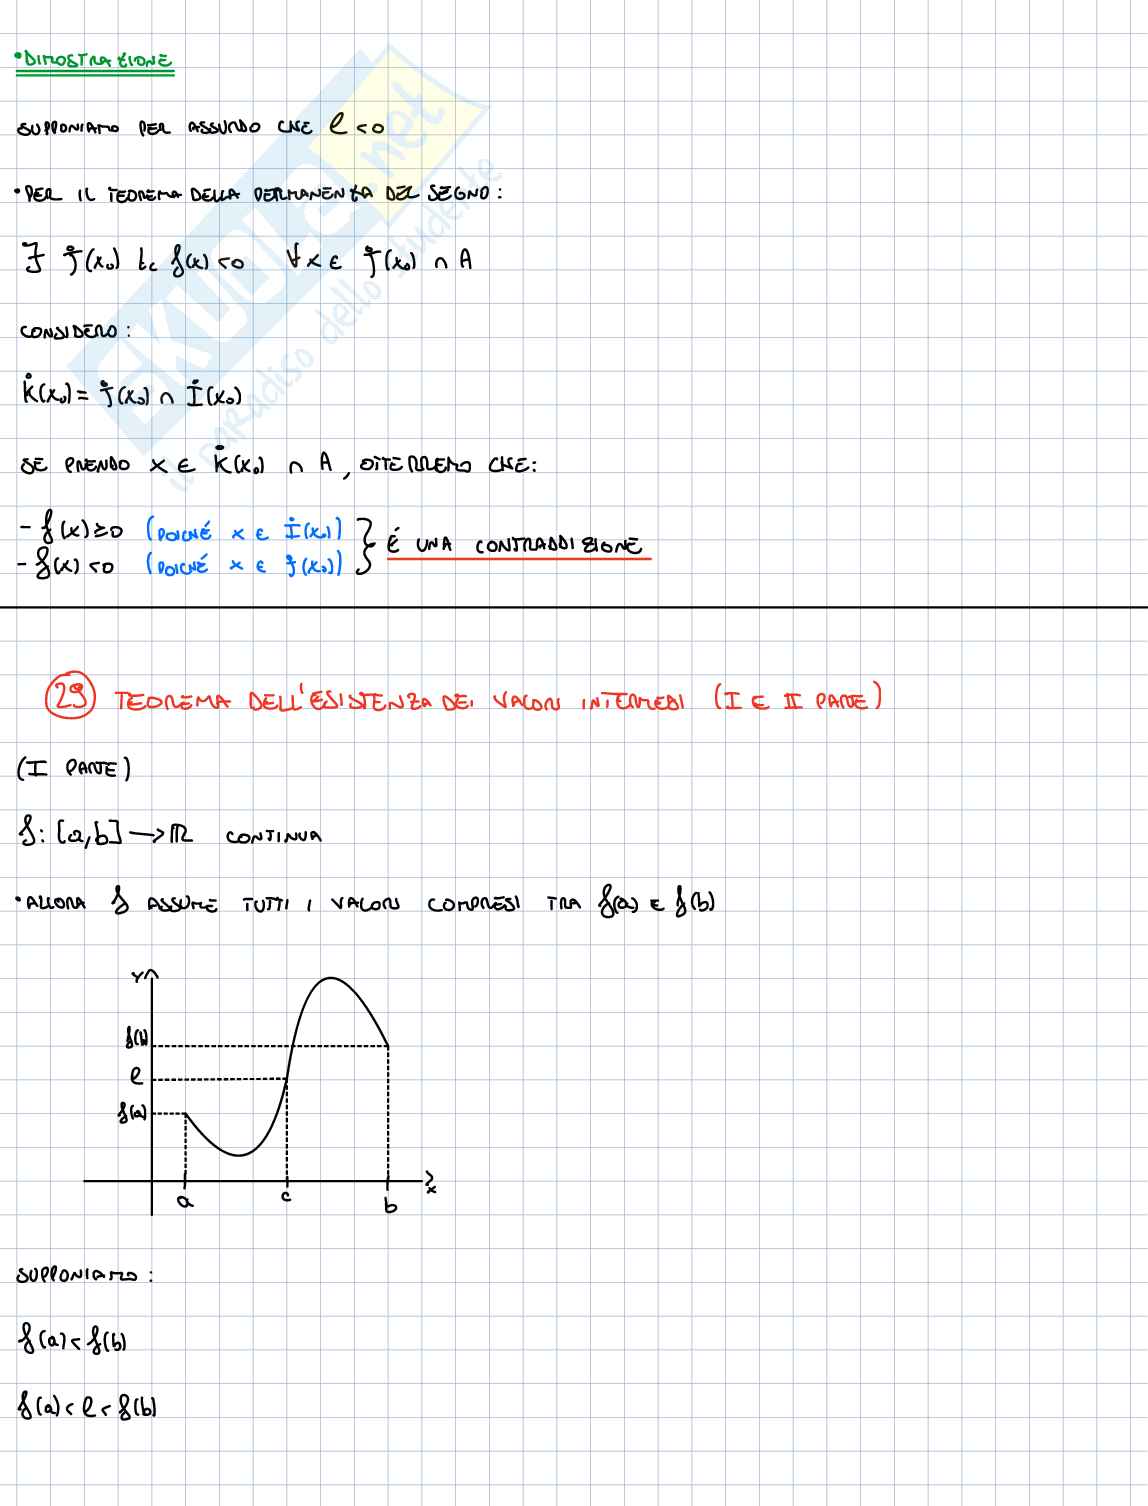 •DIMOSTRAZIONE
SUPPONIAMO PER ASSURDO CHE ℓ<0
•PER IL TEOREMA DELLA PERMANENZA DEL SEGNO:
∃ J̇(x₀) t.c f(x)<0 ∀x ∈ J̇(x₀) ∩ A
CONSIDERO:
K̇(x₀) = J̇(x₀) ∩ İ(x₀)
SE PRENDO x ∈ K̇(x₀) ∩ A, OTTERREMO CHE:
- f(x)≥0 (POICHÉ x ∈ İ(x₀))
- f(x)<0 (POICHÉ x ∈ J̇(x₀))
} É UNA CONTRADDIZIONE
29 TEOREMA DELL'ESISTENZA DEI VALORI INTERMEDI (I E II PARTE)
(I PARTE)
f: [a,b] → ℝ CONTINUA
•ALLORA f ASSUME TUTTI I VALORI COMPRESI TRA f(a) E f(b)
Y
f(b)
ℓ
f(a)
a c b x
SUPPONIAMO:
f(a)<f(b)
f(a)<ℓ<f(b)
SKUOLA.net
il paradiso dello studente